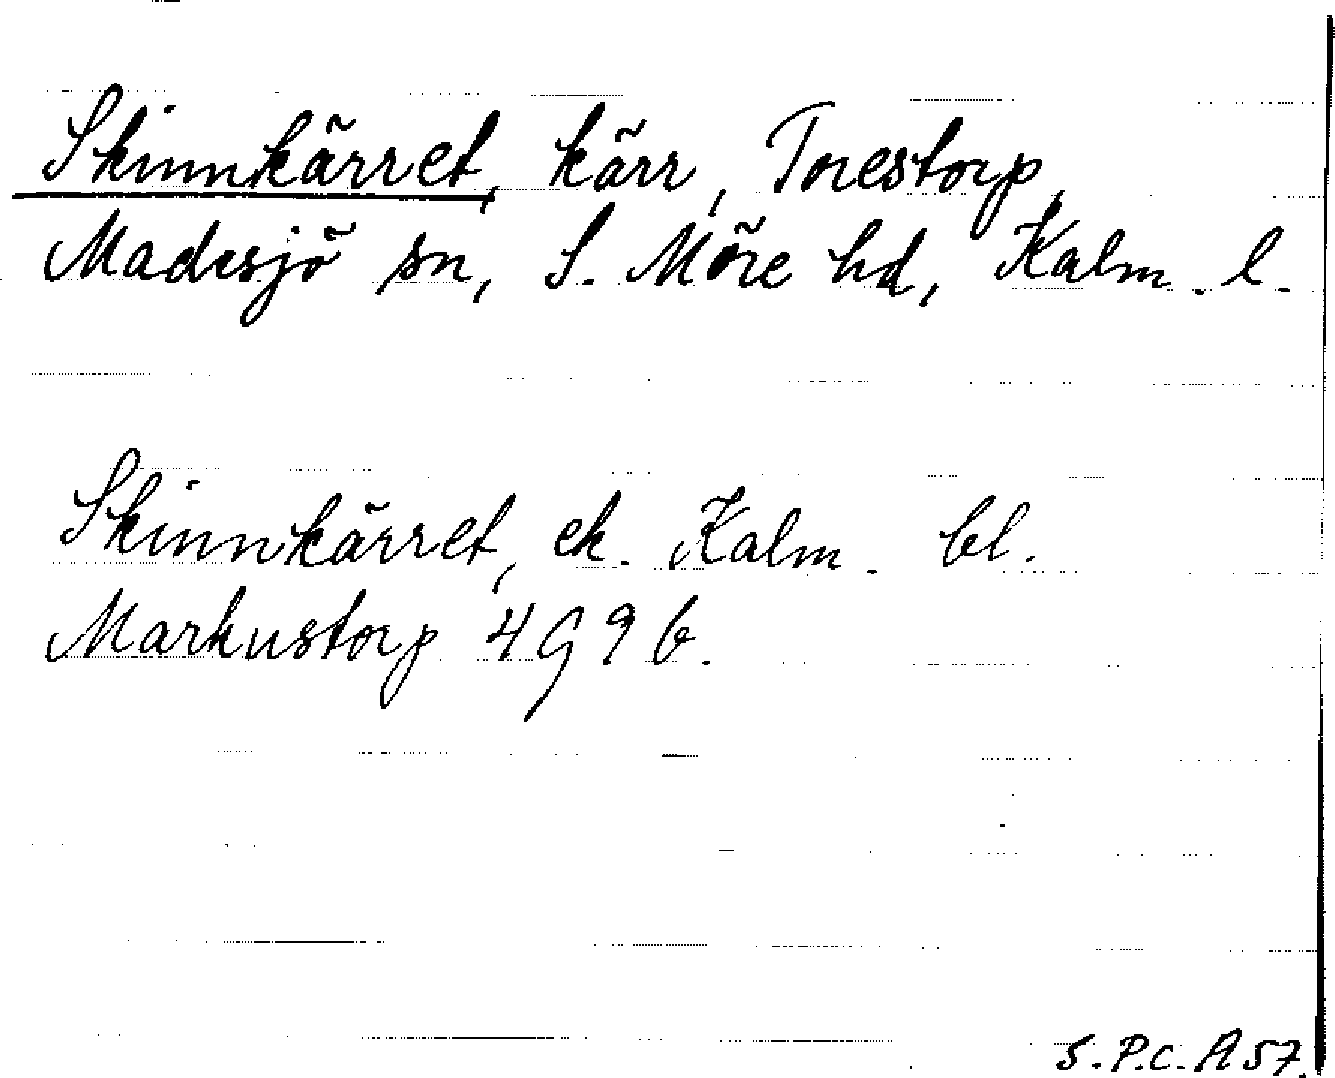 Skinnkärret, kärr, Torestorp,
Madesjö sn, S. Möre hd, Kalm. l.
Skinnkärret, ek. Kalm. bl.
Markustorp 4G9b.
S.P.C.A57.